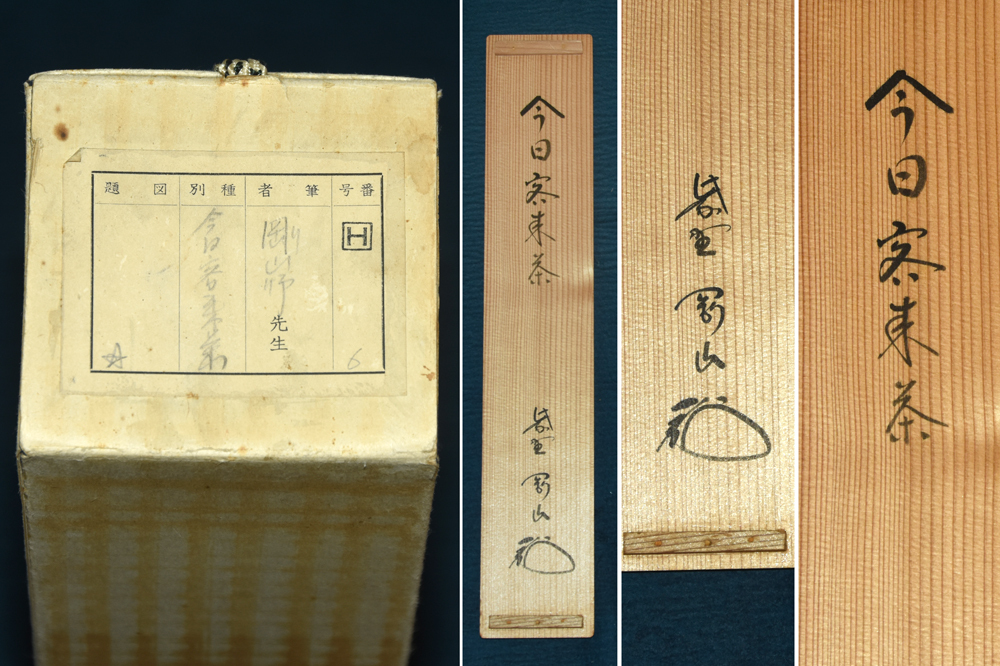 番号
筆者
種別
図題
H
6
剛山師先生
今日客来茶
今日客来茶
紫野 剛山
紫野 剛山
今日客来茶